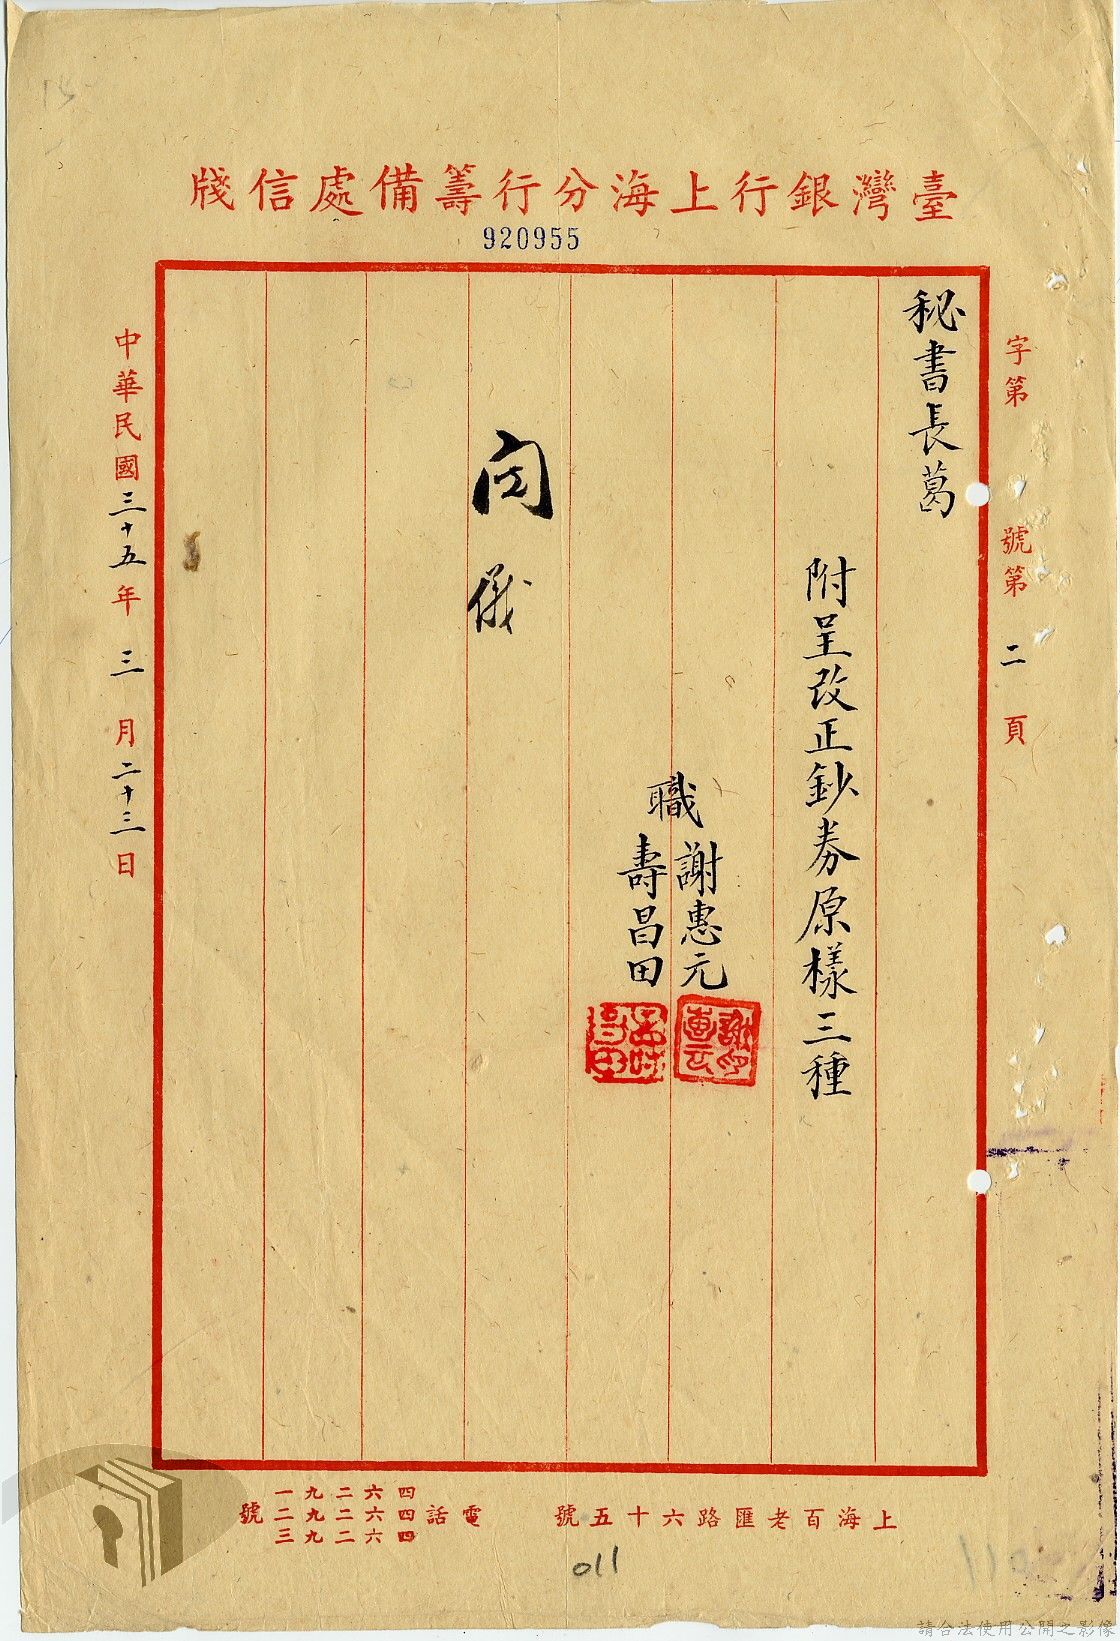 臺灣銀行上海分行籌備處信牋
920955
字第 號第二頁
秘書長葛
附呈改正鈔券原樣三種
職謝惠元
壽昌田
中華民國三十五年三月二十三日
上海百老匯路六十五號
電話 四六二九一
四六二九二號
四六二九三
011
請合法使用公開之影像